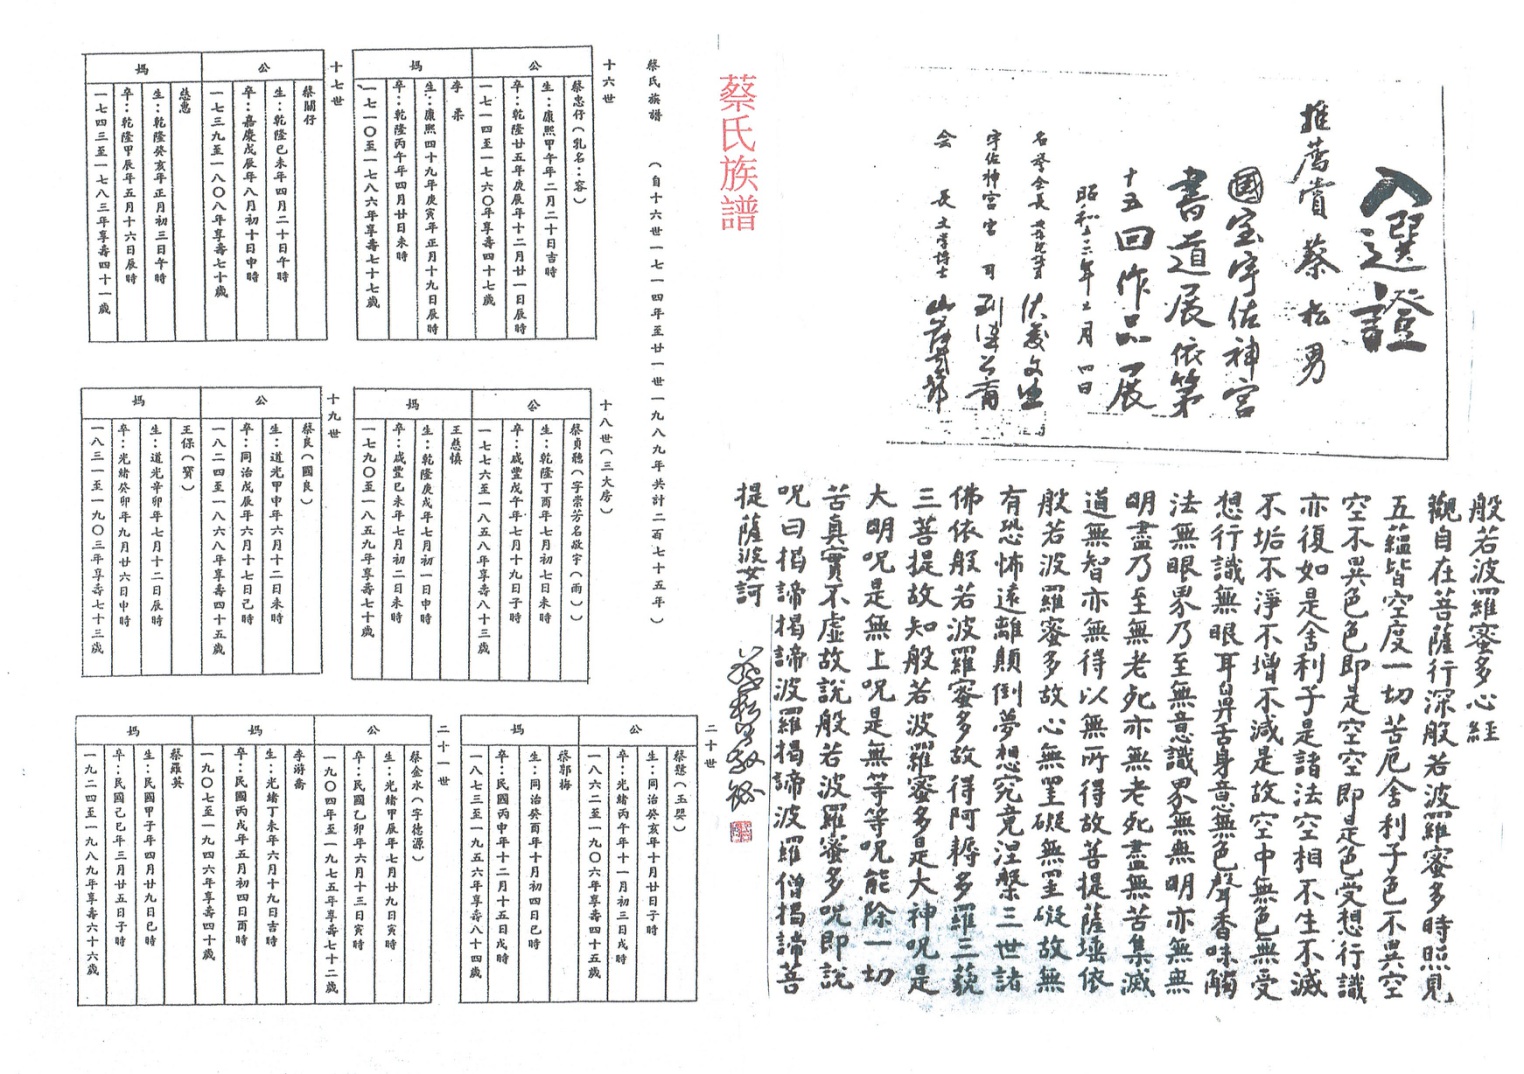 入選證
推薦賞 蔡松男
國宝宇佐神宮
書道展依第
十五回作品展
名誉会長
宇佐神宮宮司
会長 文学博士
般若波羅蜜多心経
觀自在菩薩行深般若波羅蜜多時照見
五蘊皆空度一切苦厄舍利子色不異空
空不異色色即是空空即是色受想行識
亦復如是舍利子是諸法空相不生不滅
不垢不淨不增不減是故空中無色無受
想行識無眼耳鼻舌身意無色聲香味觸
法無眼界乃至無意識界無無明亦無無
明盡乃至無老死亦無老死盡無苦集滅
道無智亦無得以無所得故菩提薩埵依
般若波羅蜜多故心無罣礙無罣礙故無
有恐怖遠離顛倒夢想究竟涅槃三世諸
佛依般若波羅蜜多故得阿耨多羅三藐
三菩提故知般若波羅蜜多是大神呪是
大明呪是無上呪是無等等呪能除一切
苦真實不虛故說般若波羅蜜多呪即說
呪曰揭諦揭諦波羅揭諦波羅僧揭諦菩
提薩婆訶
蔡氏族譜
蔡氏族譜 （自十六世一七一四年至廿一世一九八九年共計二百七十五年）
十六世
公
蔡忠仔（乳名：容）
生：康熙甲午年二月二十日吉時
卒：乾隆廿五年庚辰年十二月廿一日辰時
一七一四至一七六〇年享壽四十七歲
媽
李柔
生：康熙四十九年庚寅年正月十九日辰時
卒：乾隆丙午年四月廿日未時
一七一〇至一七八六年享壽七十七歲
十七世
公
蔡關仔
生：乾隆己未年四月二十日午時
卒：嘉慶戊辰年八月初十日申時
一七三九至一八〇八年享壽七十歲
媽
慈惠
生：乾隆癸亥年正月初三日午時
卒：乾隆甲辰年五月十六日辰時
一七四三至一七八三年享壽四十一歲
十八世（三大房）
公
蔡貞聰（字崇芳名啟宇（雨））
生：乾隆丁酉年七月初七日未時
卒：咸豐戊午年七月十九日子時
一七七六至一八五八年享壽八十三歲
媽
王慈慎
生：乾隆庚戌年七月初一日申時
卒：咸豐己未年七月初二日未時
一七九〇至一八五九年享壽七十歲
十九世
公
蔡良（國良）
生：道光甲申年六月十二日未時
卒：同治戊辰年六月十七日己時
一八二四至一八六八年享壽四十五歲
媽
王保（寶）
生：道光辛卯年七月十二日辰時
卒：光緒癸卯年九月廿六日申時
一八三一至一九〇三年享壽七十三歲
二十世
公
蔡慈（玉嬰）
生：同治癸亥年十月廿日子時
卒：光緒丙午年十一月初三日戌時
一八六二至一九〇六年享壽四十五歲
媽
蔡郭梅
生：同治癸酉年十月初四日巳時
卒：民國丙申年十二月十五日戌時
一八七三至一九五六年享壽八十四歲
二十一世
公
蔡金水（字德源）
生：光緒甲辰年七月廿九日寅時
卒：民國乙卯年六月十三日寅時
一九〇四年至一九七五年享壽七十二歲
媽
李游喬
生：光緒丁未年六月十九日吉時
卒：民國丙戌年五月初四日酉時
一九〇七至一九四六年享壽四十歲
媽
蔡羅英
生：民國甲子年四月廿九日巳時
卒：民國己巳年三月廿五日子時
一九二四至一九八九年享壽六十六歲